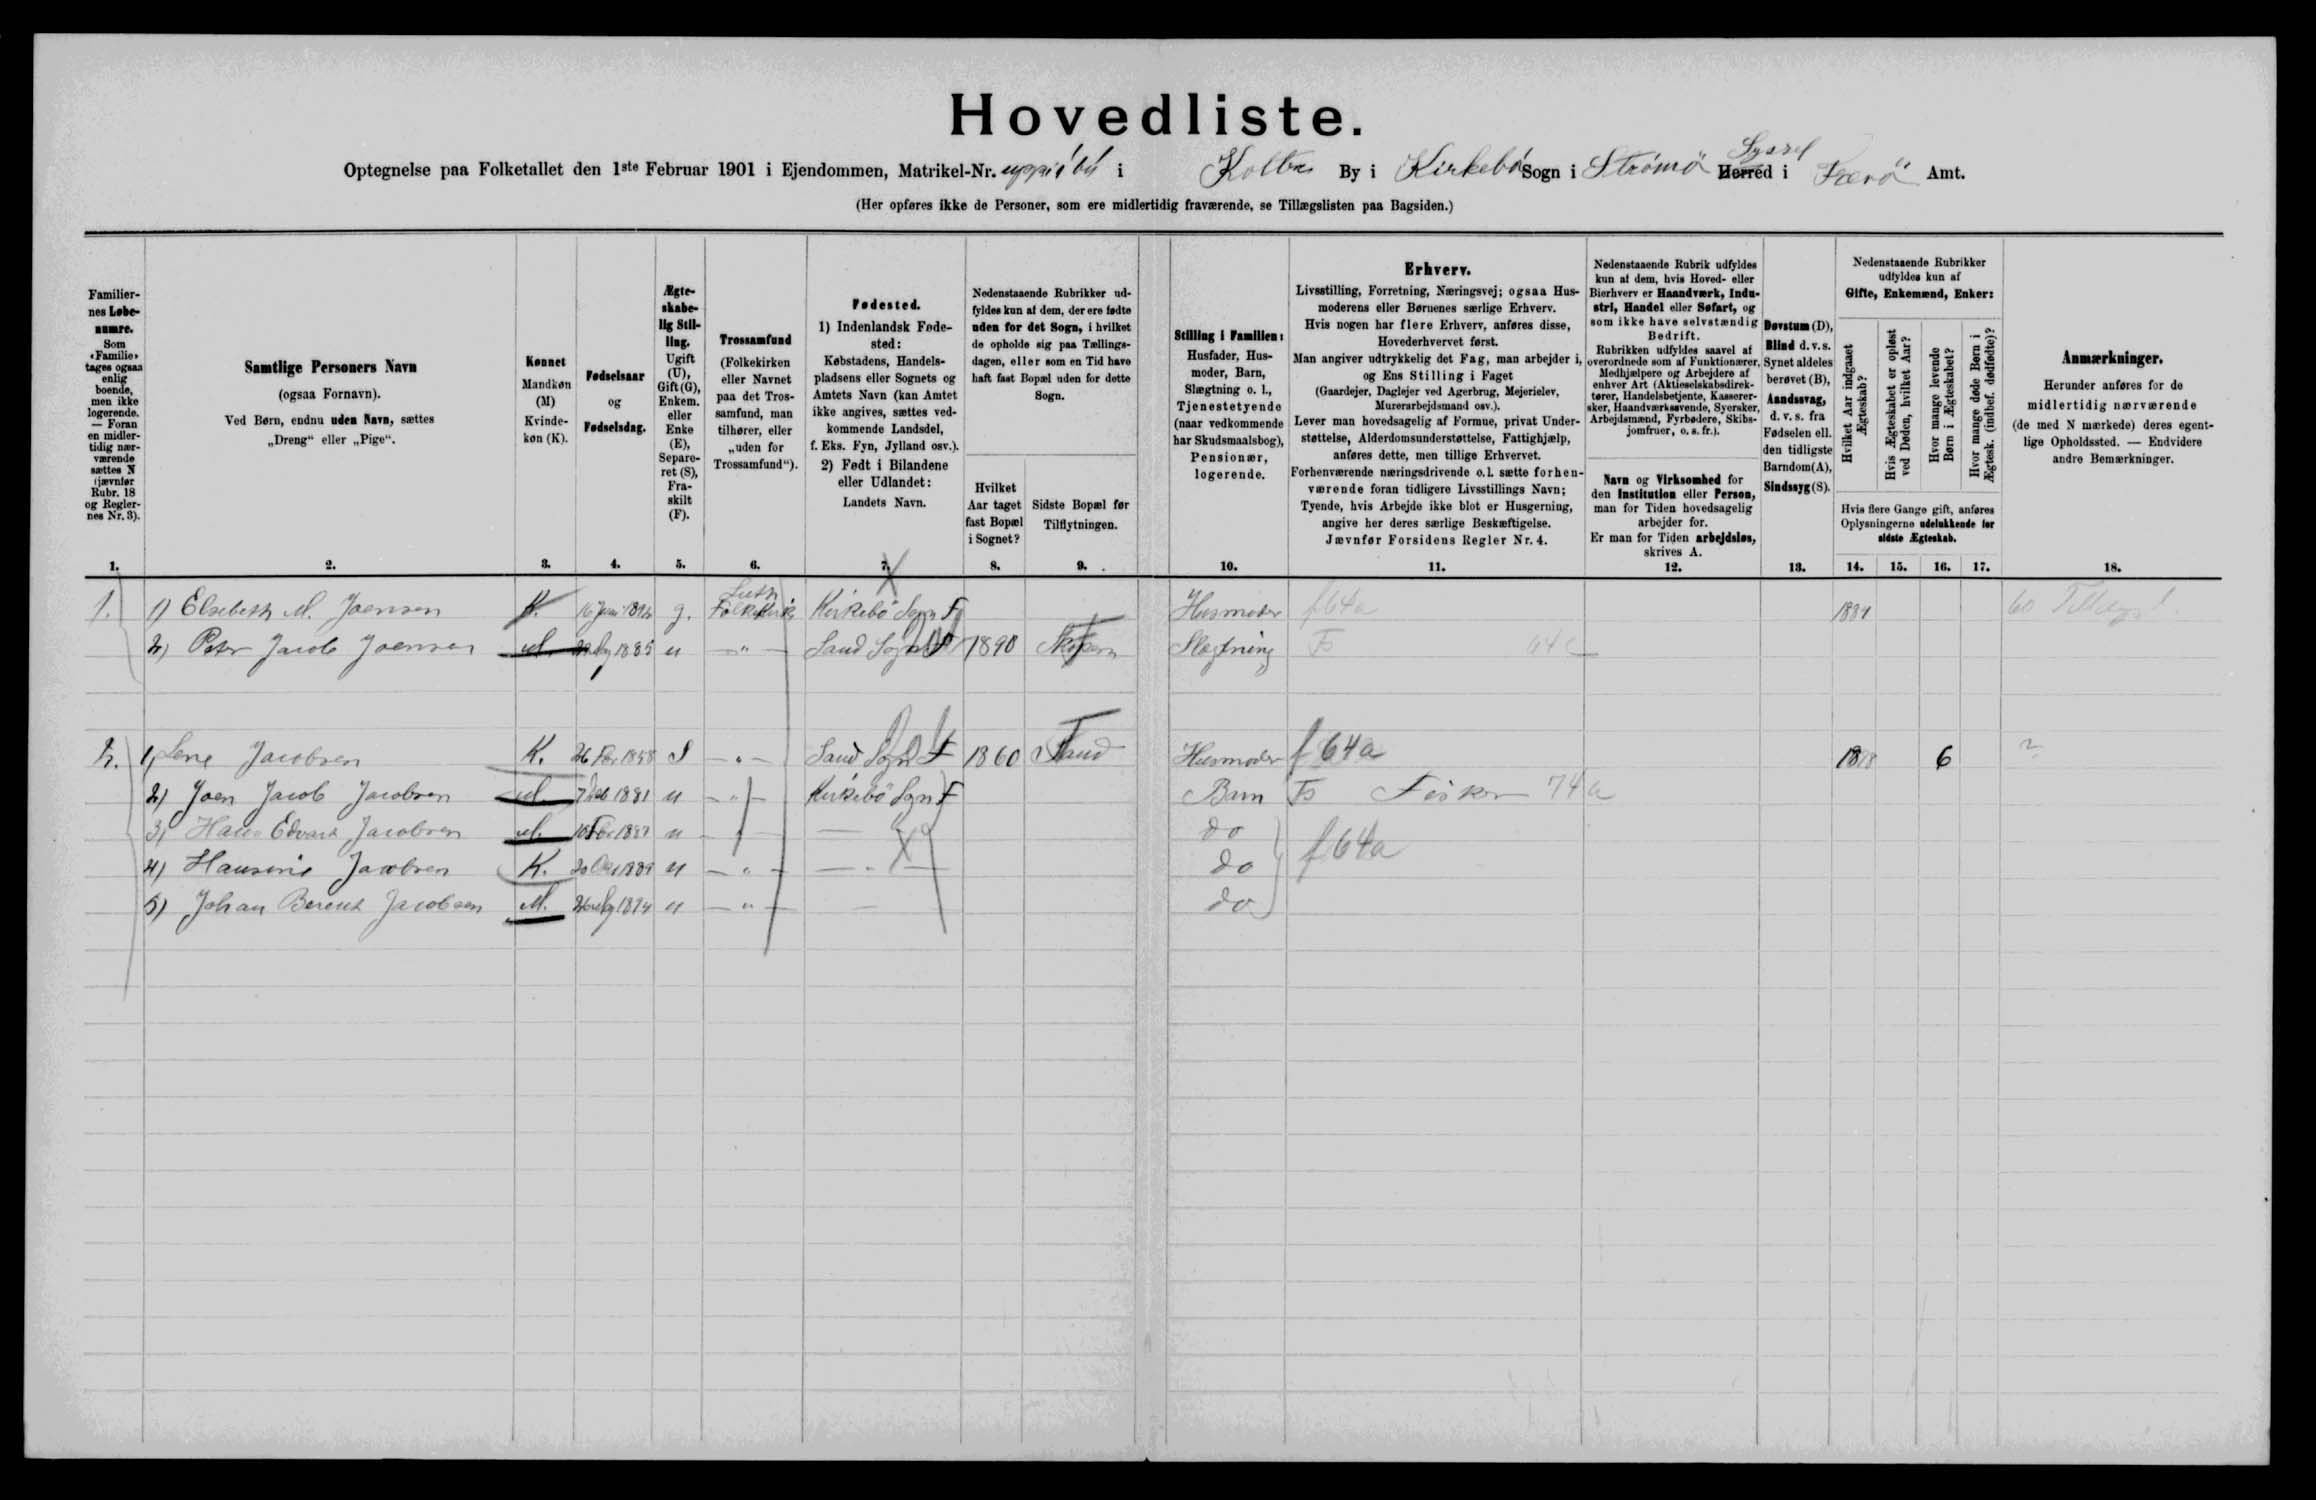 Hovedliste.
Optegnelse paa Folketallet den 1ste Februar 1901 i Ejendommen, Matrikel-Nr. i Kolter By i Kirkebö Sogn i Strömö Herred Syssel i Færö Amt.
(Her opføres ikke de Personer, som ere midlertidig fraværende, se Tillægslisten paa Bagsiden.)
Familier-
nes Løbe-
numre.
Som
«Familie»
tages ogsaa
enlig
boende,
men ikke
logerende.
— Foran
en midler-
tidig nær-
værende
sættes N
(jævnfør
Rubr. 18
og Regler-
nes Nr. 3).
1.
Samtlige Personers Navn
(ogsaa Fornavn).
Ved Børn, endnu uden Navn, sættes
„Dreng“ eller „Pige“.
2.
Kønnet
Mandkøn
(M)
Kvinde-
køn (K).
3.
Fødselsaar
og
Fødselsdag.
4.
Ægte-
skabe-
lig Stil-
ling.
Ugift
(U),
Gift (G),
Enkem.
eller
Enke
(E),
Separe-
ret (S),
Fra-
skilt
(F).
5.
Trossamfund
(Folkekirken
eller Navnet
paa det Tros-
samfund, man
tilhører, eller
„uden for
Trossamfund“).
6.
Fødested.
1) Indenlandsk Føde-
sted:
Købstadens, Handels-
pladsens eller Sognets og
Amtets Navn (kan Amtet
ikke angives, sættes ved-
kommende Landsdel,
f. Eks. Fyn, Jylland osv.).
2) Født i Bilandene
eller Udlandet:
Landets Navn.
7.
Nedenstaaende Rubrikker ud-
fyldes kun af dem, der ere fødte
uden for det Sogn, i hvilket
de opholde sig paa Tællings-
dagen, eller som en Tid have
haft fast Bopæl uden for dette
Sogn.
Hvilket
Aar taget
fast Bopæl
i Sognet?
8.
Sidste Bopæl før
Tilflytningen.
9.
Stilling i Familien:
Husfader, Hus-
moder, Barn,
Slægtning o. l.,
Tjenestetyende
(naar vedkommende
har Skudsmaalsbog),
Pensionær,
logerende.
10.
Erhverv.
Livsstilling, Forretning, Næringsvej; ogsaa Hus-
moderens eller Børnenes særlige Erhverv.
Hvis nogen har flere Erhverv, anføres disse,
Hovederhvervet først.
Man angiver udtrykkelig det Fag, man arbejder i,
og Ens Stilling i Faget
(Gaardejer, Daglejer ved Agerbrug, Mejerielev,
Murerarbejdsmand osv.).
Lever man hovedsagelig af Formue, privat Under-
støttelse, Alderdomsunderstøttelse, Fattighjælp,
anføres dette, men tillige Erhvervet.
Forhenværende næringsdrivende o.l. sætte forhen-
værende foran tidligere Livsstillings Navn;
Tyende, hvis Arbejde ikke blot er Husgerning,
angive her deres særlige Beskæftigelse.
Jævnfør Forsidens Regler Nr. 4.
11.
Nedenstaaende Rubrik udfyldes
kun af dem, hvis Hoved- eller
Bierhverv er Haandværk, Indu-
stri, Handel eller Søfart, og
som ikke have selvstændig
Bedrift.
Rubrikken udfyldes saavel af
overordnede som af Funktionærer,
Medhjælpere og Arbejdere af
enhver Art (Aktieselskabsdirek-
tører, Handelsbetjente, Kasserer-
sker, Haandværkssvende, Syersker,
Arbejdsmænd, Fyrbødere, Skibs-
jomfruer, o. s. fr.).
Navn og Virksomhed for
den Institution eller Person,
man for Tiden hovedsagelig
arbejder for.
Er man for Tiden arbejdsløs,
skrives A.
12.
Døvstum (D),
Blind d. v. s.
Synet aldeles
berøvet (B),
Aandssvag,
d. v. s. fra
Fødselen ell.
den tidligste
Barndom(A),
Sindssyg(S).
13.
Nedenstaaende Rubrikker
udfyldes kun af
Gifte, Enkemænd, Enker:
Hvilket Aar indgaaet
Ægteskab?
Hvis Ægteskabet er opløst
ved Døden, hvilket Aar?
Hvor mange levende
Børn i Ægteskabet?
Hvor mange døde Børn i
Ægtesk. (indbef. dødfødte)?
Hvis flere Gange gift, anføres
Oplysningerne udelukkende for
sidste Ægteskab.
14. 15. 16. 17.
Anmærkninger.
Herunder anføres for de
midlertidig nærværende
(de med N mærkede) deres egent-
lige Opholdssted. — Endvidere
andre Bemærkninger.
18.
1. 1) Elsebeth M. Joensen K. g. Luth Folkekirke Kirkebö Sogn F Husmoder f64a 60
2) Peter Jacob Joensen M. 1885 u —"— Sand Sogn F 1890 Slægtning Fs 64c
2. 1) Lene Jacobsen K. 1858 S —"— Sand Sogn F 1860 Sand Husmoder f 64a 6 ?
2) Joen Jacob Jacobsen M. 1881 u —"— Kirkebö Sogn F Barn Fs Fisker 74a
3) Hans Edvard Jacobsen M. u —"— do
4) Hansine Jacobsen K. 1889 u —"— —"— do f64a
5) Johan Berent Jacobsen M. 1894 u —"— — do